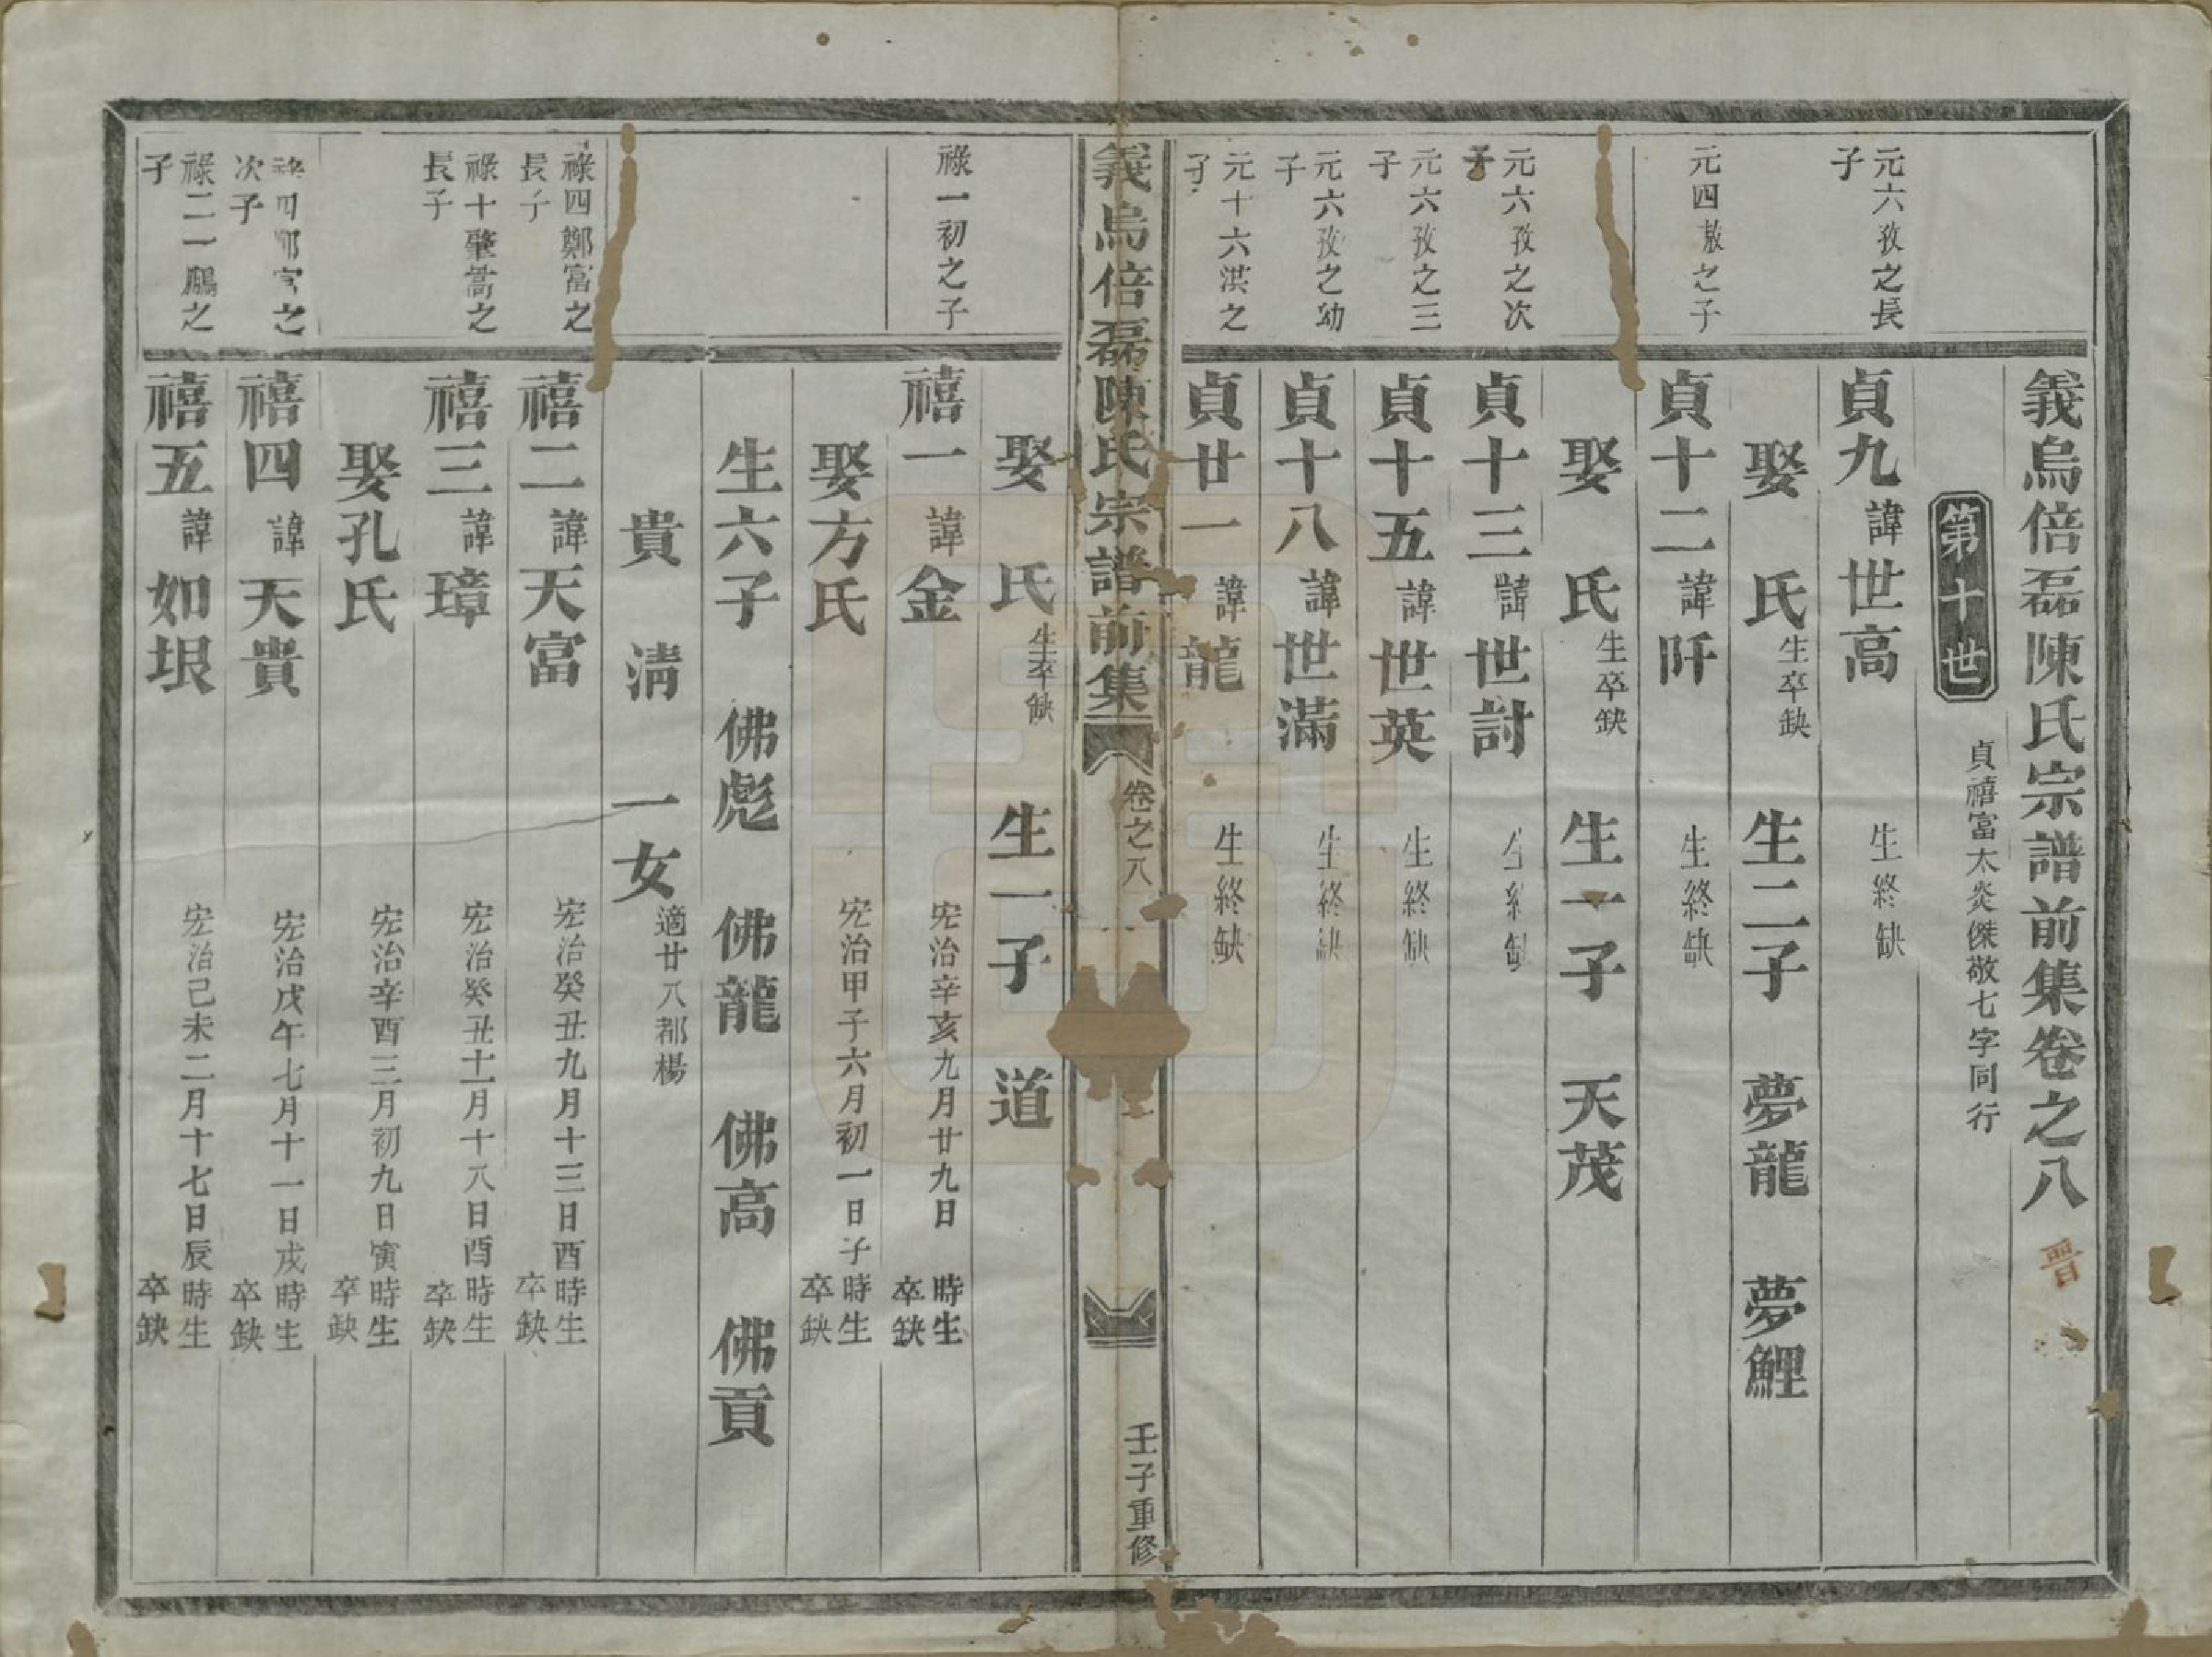 義烏倍磊陳氏宗譜前集卷之八
第十世 貞禧富太炎傑敬七字同行
元六孜之長子
貞九 諱世高 生終缺
娶 氏 生卒缺 生二子 夢龍 夢鯉
元四敖之子
貞十二 諱阡 生終缺
娶 氏 生卒缺 生一子 天茂
元六孜之次子
貞十三 諱世討 生終缺
元六孜之三子
貞十五 諱世英 生終缺
元六孜之幼子
貞十八 諱世滿 生終缺
元十六淇之子
貞廿一 諱龍 生終缺
義烏倍磊陳氏宗譜前集 卷之八 壬子重修
娶 氏 生卒缺 生一子 道
祿一初之子
禧一 諱金 宏治辛亥九月廿九日 時生 卒缺
娶方氏 宏治甲子六月初一日子時生 卒缺
生六子 佛彪 佛龍 佛高 佛貢
貴 清 一女 適廿八都楊
祿四鄭富之長子
禧二 諱天富 宏治癸丑九月十三日酉時生 卒缺
祿十肇嵩之長子
禧三 諱璋 宏治癸丑十一月十八日酉時生 卒缺
娶孔氏 宏治辛酉三月初九日寅時生 卒缺
祿四鄭富之次子
禧四 諱天貴 宏治戊午七月十一日戌時生 卒缺
祿二一鵬之子
禧五 諱如垠 宏治己未二月十七日辰時生 卒缺